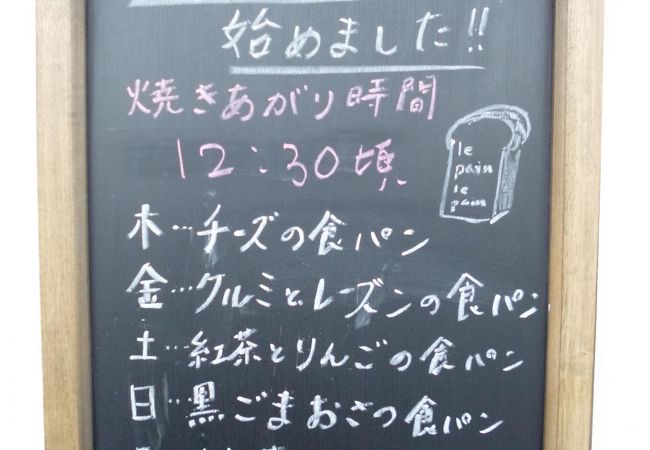 始めました!!
焼きあがり時間
12:30頃
le
pain
le
pain
木…チーズの食パン
金…クルミとレーズンの食パン
土…紅茶とりんごの食パン
日…黒ごまおさつ食パン